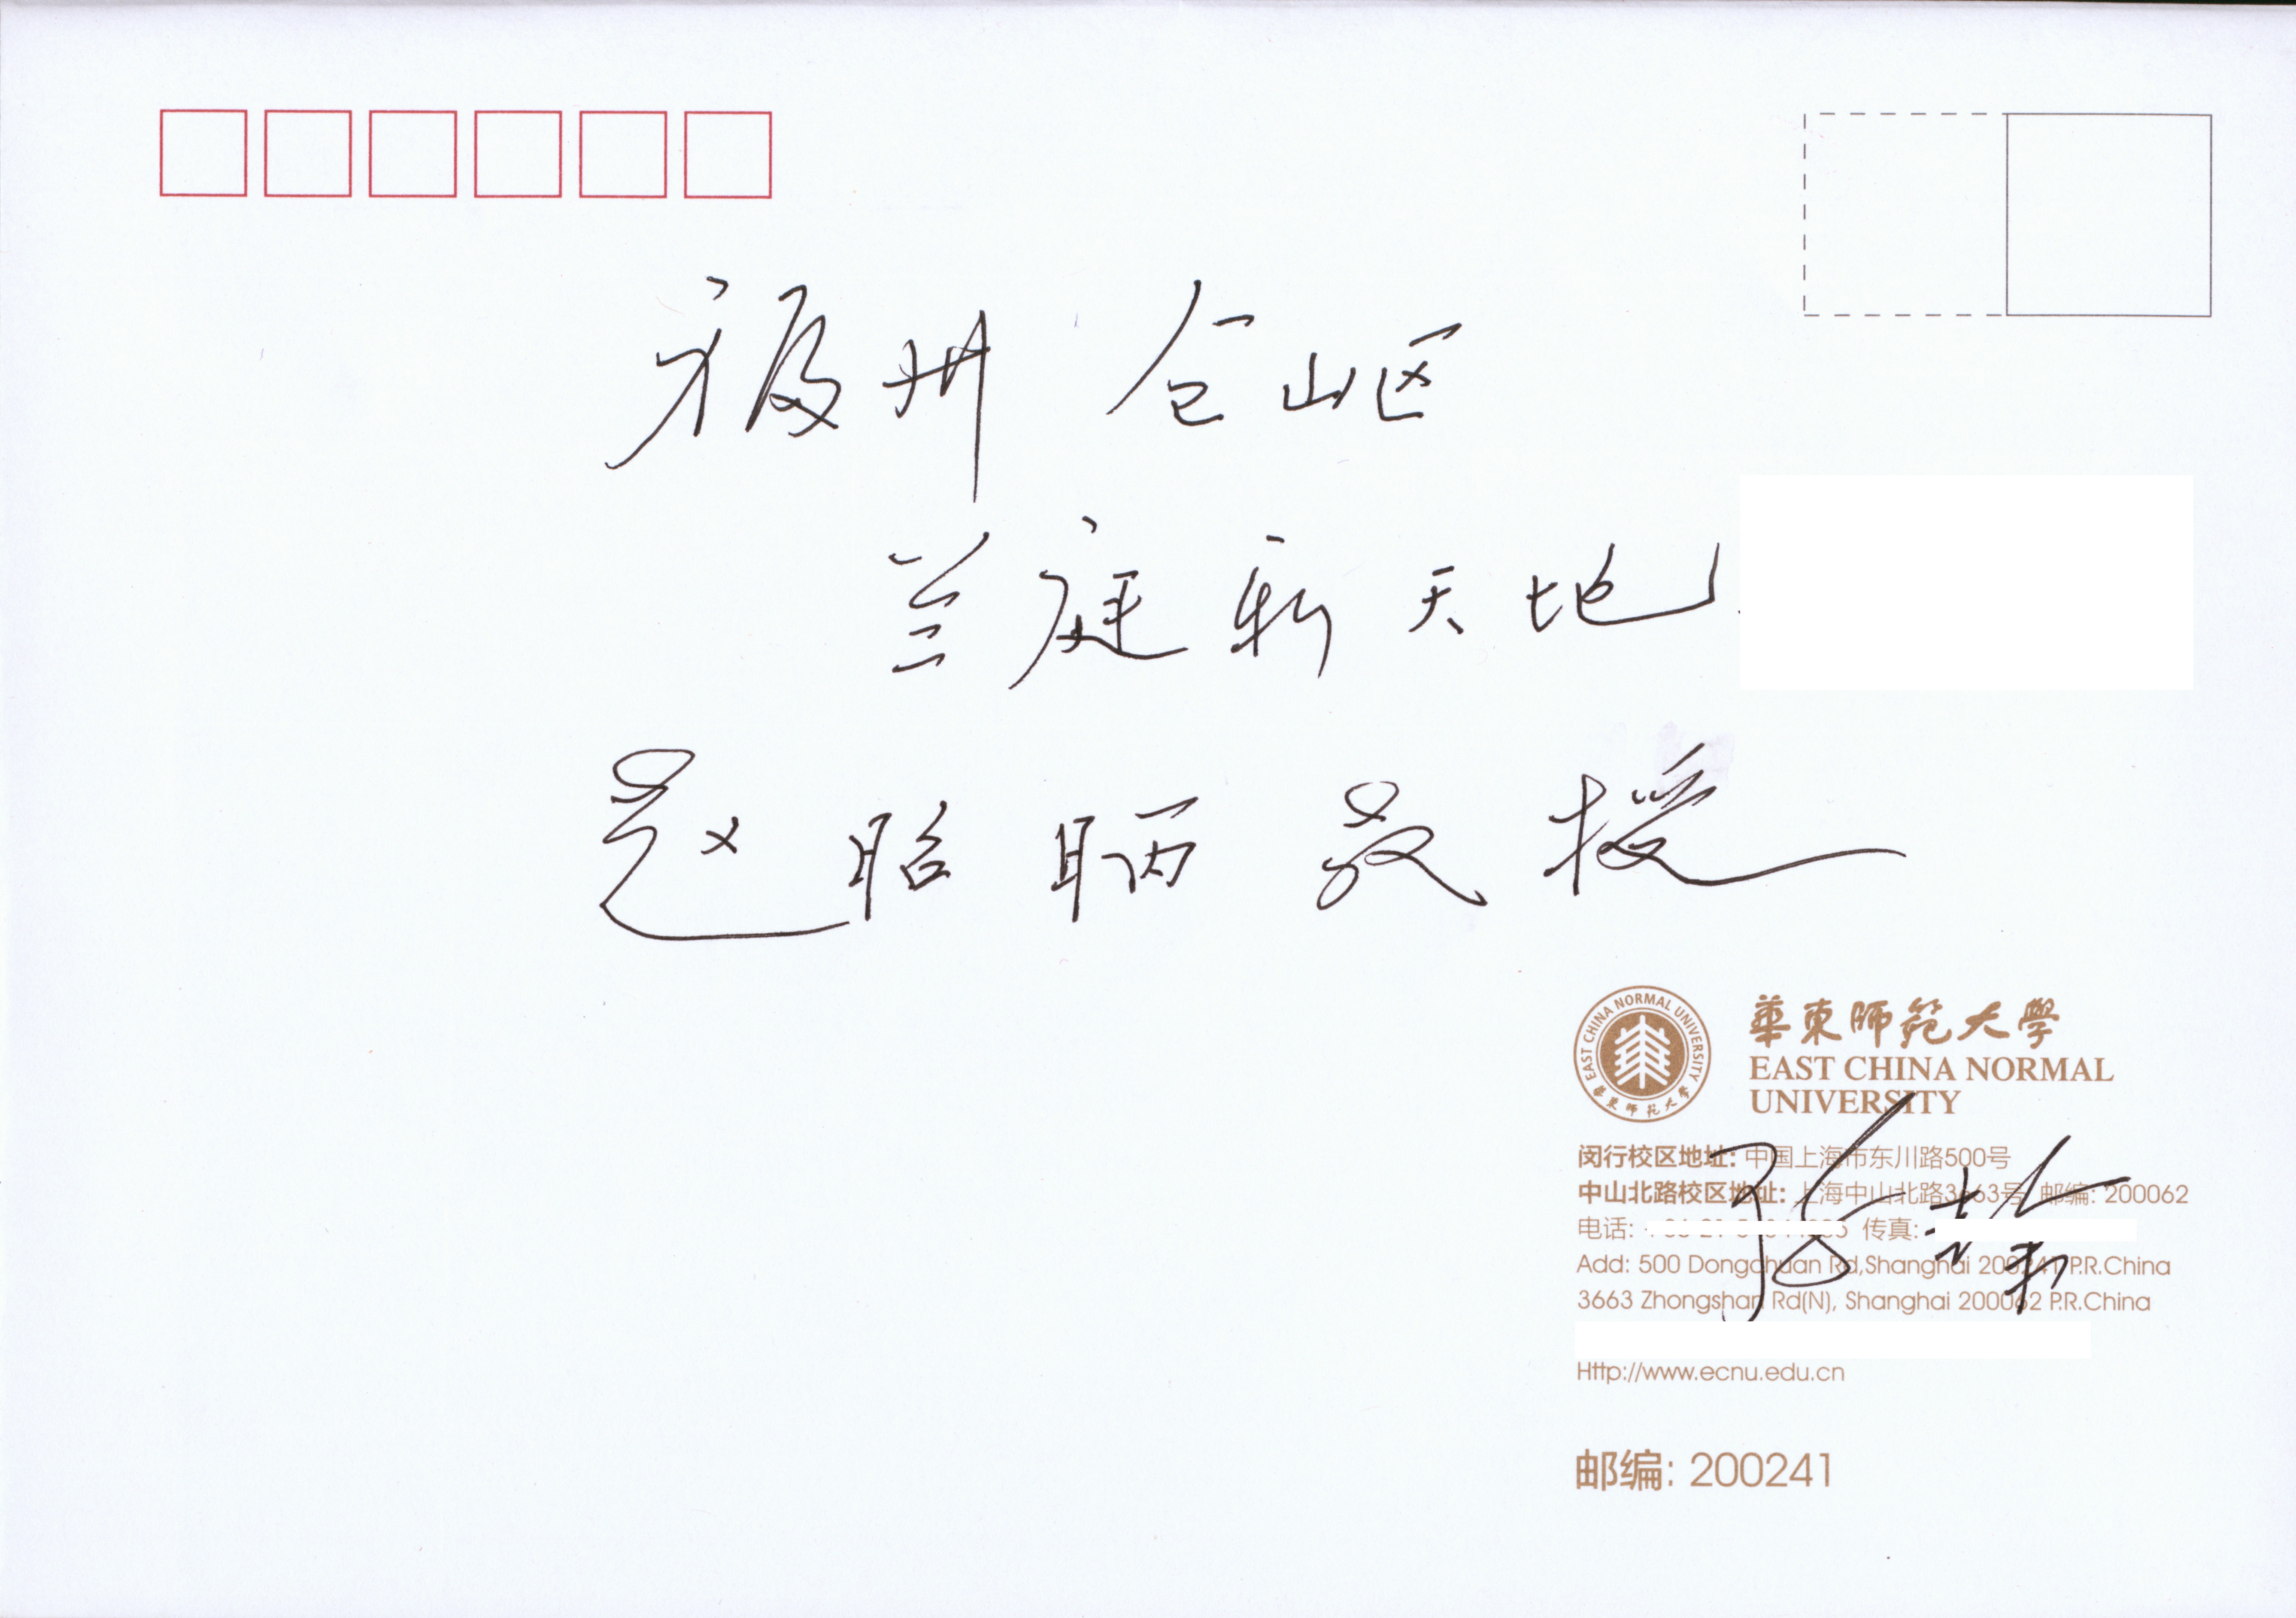 福州 仓山区
兰庭新天地
赵昭昞 教授
EAST CHINA NORMAL UNIVERSITY
華東师范大學
華東师范大學
EAST CHINA NORMAL
UNIVERSITY
闵行校区地址: 中国上海市东川路500号
中山北路校区地址: 上海中山北路3663号 邮编: 200062
电话: 传真:
Add: 500 Dongchuan Rd,Shanghai 200241 P.R.China
3663 Zhongshan Rd(N), Shanghai 200062 P.R.China
Http://www.ecnu.edu.cn
邮编: 200241